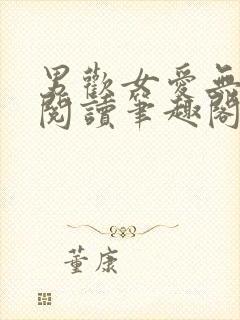 男歡女愛無
閱讀筆趣閣
董康